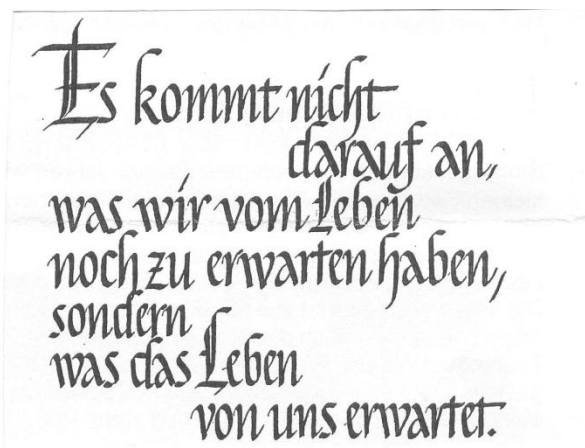 Es kommt nicht
darauf an,
was wir vom Leben
noch zu erwarten haben,
sondern
was das Leben
von uns erwartet.